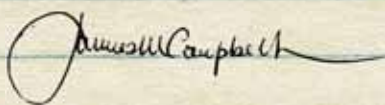 James M Campbell